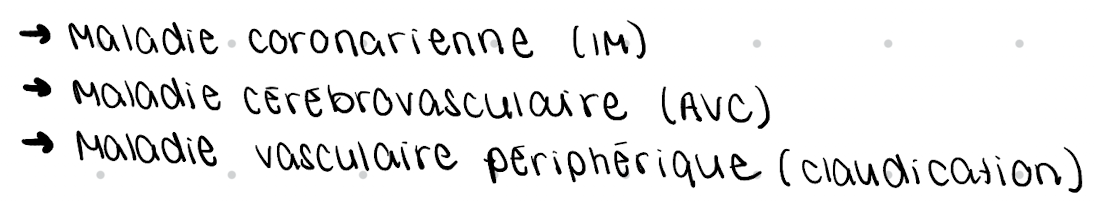 → Maladie coronarienne (IM)
→ Maladie cérébrovasculaire (AVC)
→ Maladie vasculaire périphérique (claudication)